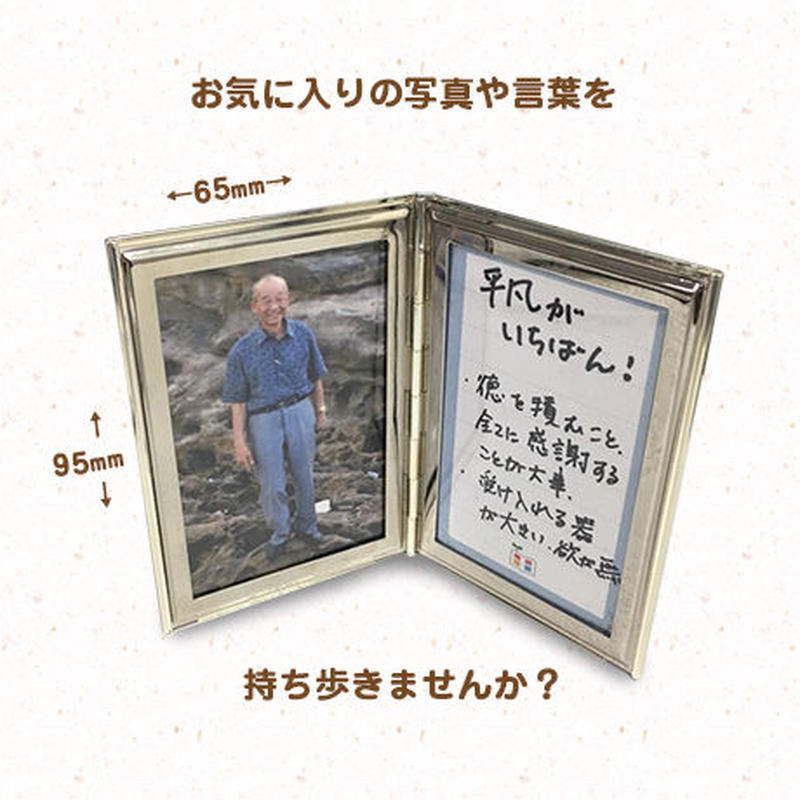 お気に入りの写真や言葉を
←65mm→
95mm
平凡が
いちばん!
・徳を積むこと、
全てに感謝する
ことが大事、
・受け入れる器
が大きい、欲が無
持ち歩きませんか?